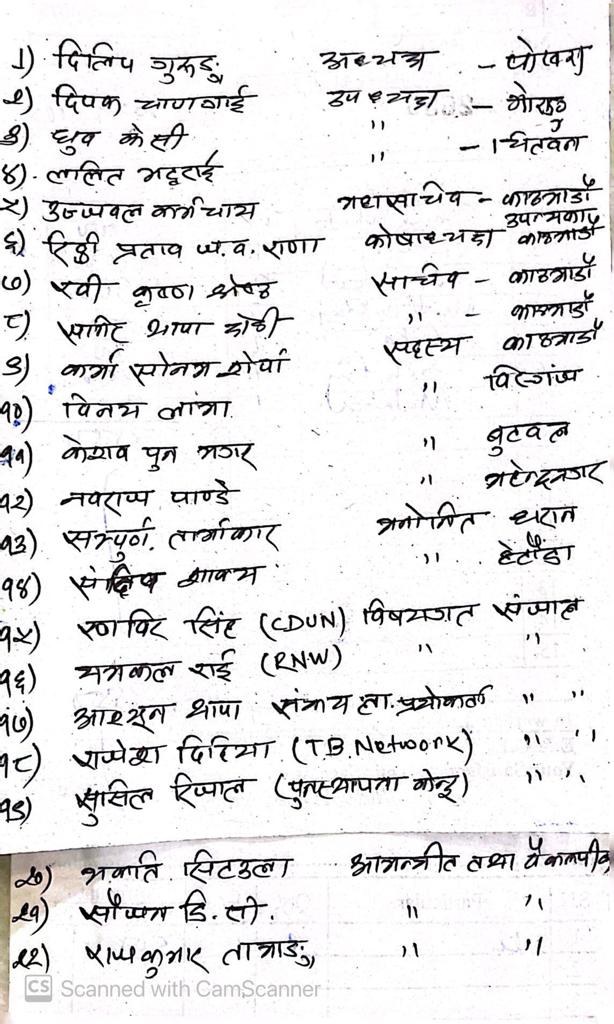 १) दिलिप गुरुङ्ग अध्यक्ष - पोखरा
२) दिपक चापागाई उपाध्यक्ष - मोरङ
३) ध्रुव के सी " - चितवन
४) ललित भट्टराई "
५) उज्जवल कर्माचार्य महासचिव - काठमाडौं
६) रिद्धी प्रताव ज.व. राणा कोषाध्यक्ष उपत्यका काठमाडौं
७) रवी कृष्ण श्रेष्ठ सचिव - काठमाडौं
८) सागिट थापा क्षेत्री " - काठमाडौं
९) कर्मा सोनम शेर्पा सदस्य काठमाडौं
१०) विनय लामा " विरगंज
११) केशव पुन मगर " बुटवल
१२) नवराज पाण्डे " महेन्द्रनगर
१३) सम्पुर्ण ताम्राकार मनोनित धरान
१४) संदिप शाक्य " हेटौंडा
१५) रणविर सिंह (CDUN) विषयगत संजाल
१६) यामकल राई (RNW) " "
१७) आइसुन थापा प्रयोगकर्ता " "
१८) राजेश दिदिया (TB Network) " "
१९) सुसिल रिजाल (पुनस्थापना केन्द्र) " "
२०) भक्ति सिटउला आमन्त्रीत तथा वैकल्पीक
२१) सौजन डि. सी. " "
२२) राजकुमार तामाङ्ग " "
CS Scanned with CamScanner